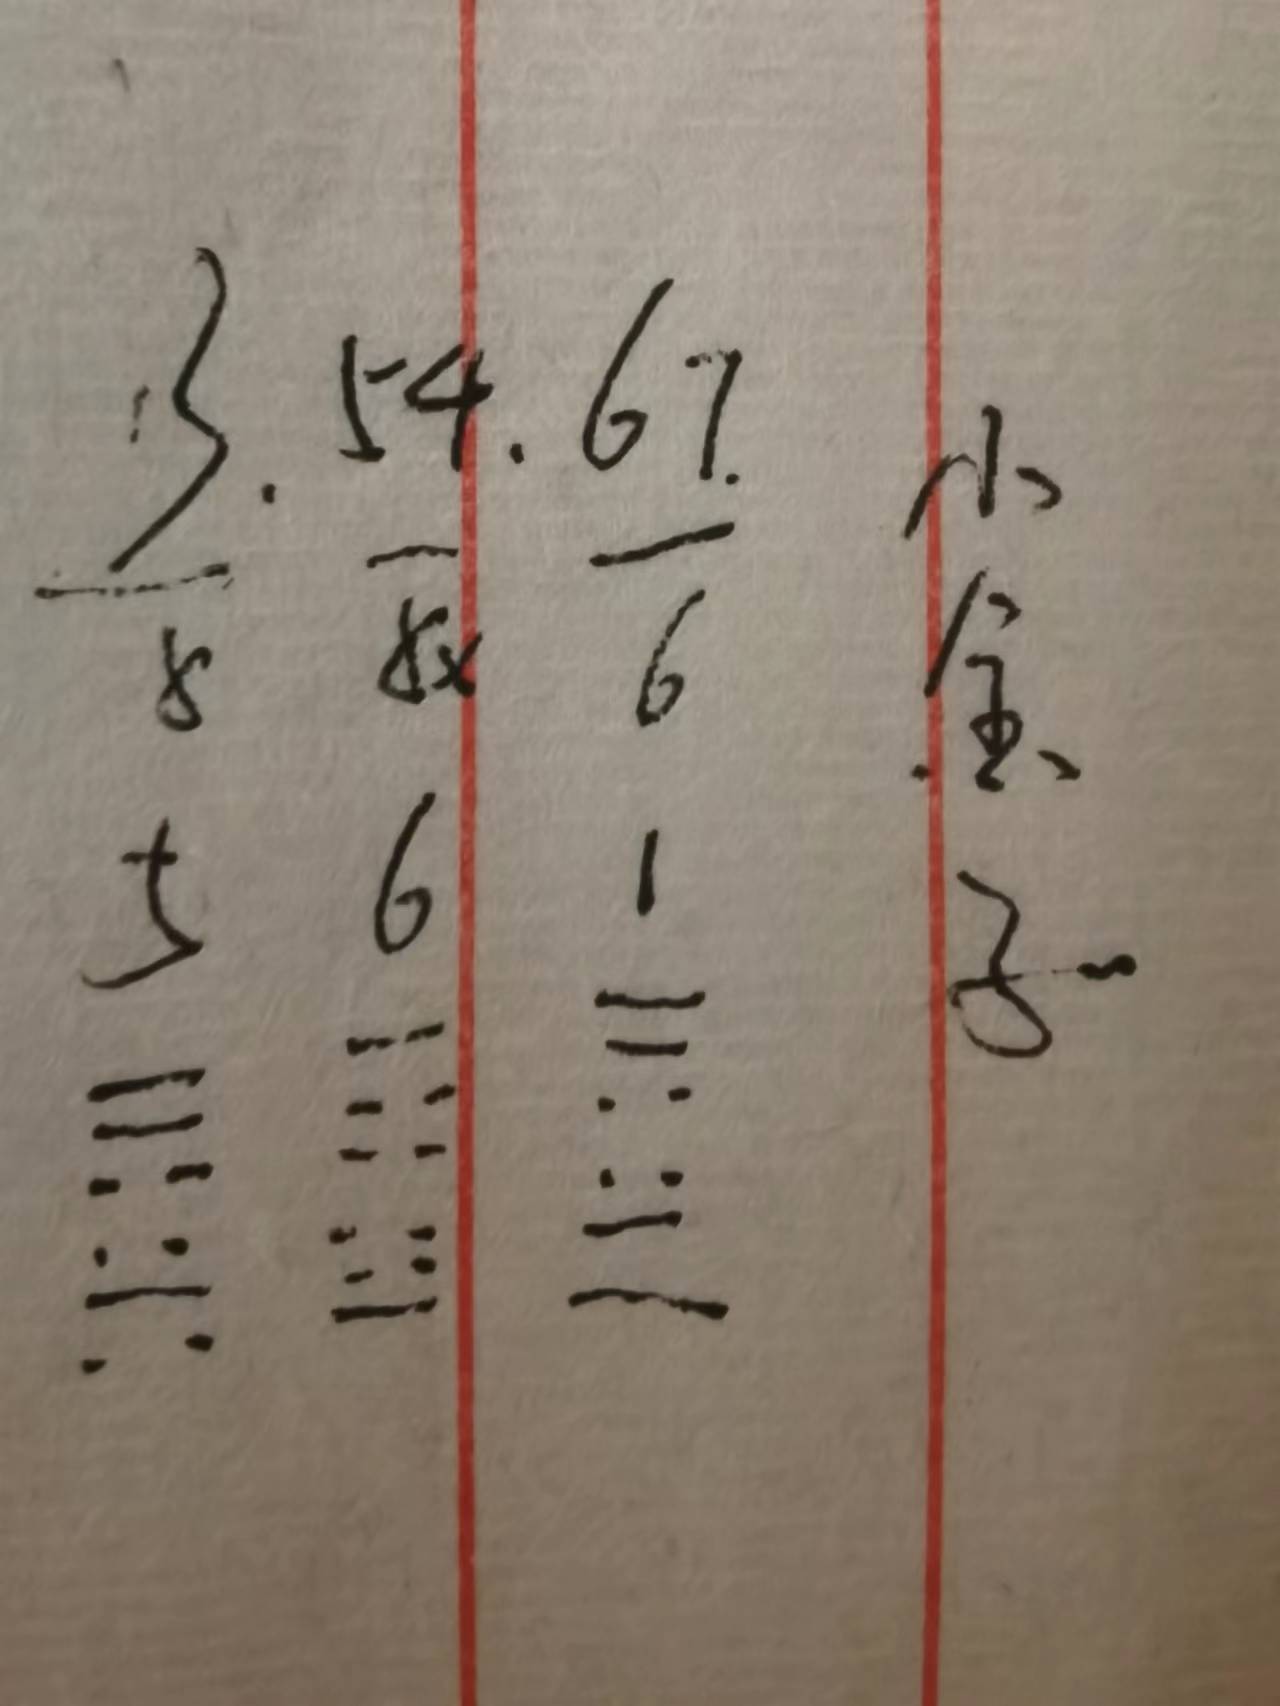 13. 54. 67.
8 8x 6
5 6 1
小
金
子